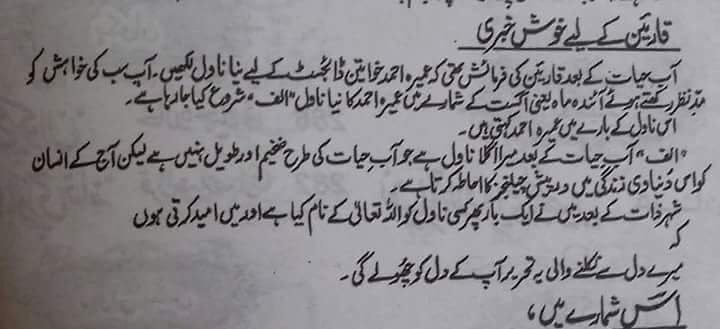 قارئین کے لیے خوش خبری
آبِ حیات کے بعد قارئین کی فرمائش تھی کہ عمیرہ احمد خواتین ڈائجسٹ کے لیے نیا ناول لکھیں۔ آپ سب کی خواہش کو
مدِّنظر رکھتے ہوئے آئندہ ماہ یعنی اگست کے شمارے میں عمیرہ احمد کا نیا ناول "الف" شروع کیا جارہا ہے۔
اس ناول کے بارے میں عمیرہ احمد کہتی ہیں۔
"الف" آبِ حیات کے بعد میرا اگلا ناول ہے جو آبِ حیات کی طرح ضخیم اور طویل نہیں ہے لیکن آج کے انسان
کو اس دُنیاوی زندگی میں درپیش چیلنجز کا احاطہ کرتا ہے۔
شہرِ ذات کے بعد میں نے ایک بار پھر کسی ناول کو اللہ تعالیٰ کے نام کیا ہے اور میں امید کرتی ہوں
کہ
میرے دل سے نکلنے والی یہ تحریر آپ کے دل کو چھولے گی۔
اس شمارے میں،